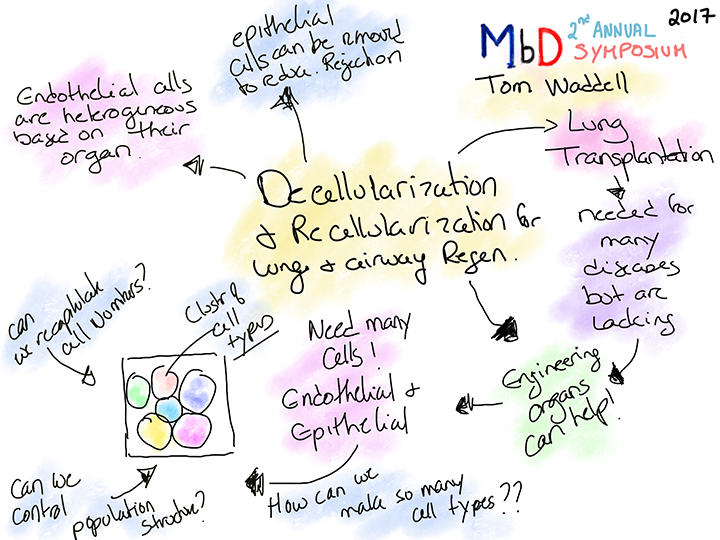 MbD 2nd ANNUAL SYMPOSIUM
2017
Tom Waddell
Decellularization
& Recellularization for
lungs & airway Regen.
epithelial
cells can be removed
to reduce Rejection
Endothelial cells
are heterogeneous
based on their
organ.
Lung
Transplantation
needed for
many
diseases
but are
Lacking
Engineering
organs
can help!
Need many
Cells!
Endothelial &
Epithelial
How can we
make so many
cell types??
Clstr of
cell
types
can
we recapitulate
cell Numbers?
Can we
control
population
structure?